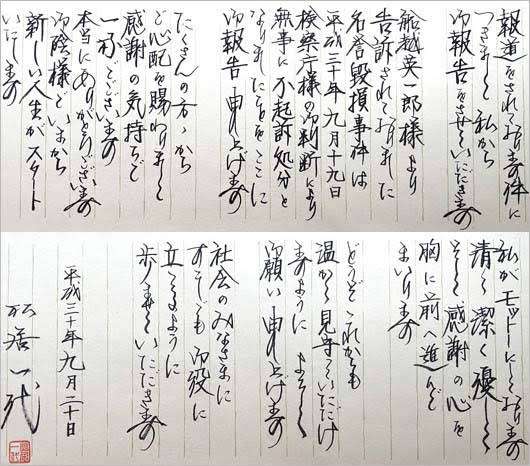 報道をされております件に
つきまして 私から
御報告をさせていただきます
船越英一郎様より
告訴されておりました
名誉毀損事件は
平成三十年九月十九日
検察庁様の御判断により
無事に不起訴処分と
なりましたことをここに
御報告申し上げます
たくさんの方々から
ご心配を賜わりまして
感謝の気持ちで
一杯でございます
本当にありがとうございます
御陰様でいまから
新しい人生がスタート
いたします
私がモットーとしております
清く 潔く 優しく
そして 感謝の心を
胸に前へ進んで
まいります
どうぞこれからも
温かく見守っていただけ
ますように よろしく
御願い申し上げます
社会のみなさまに
すこしでも御役に
立てるように
歩ませていただきます
平成三十年九月二十日
松居一代